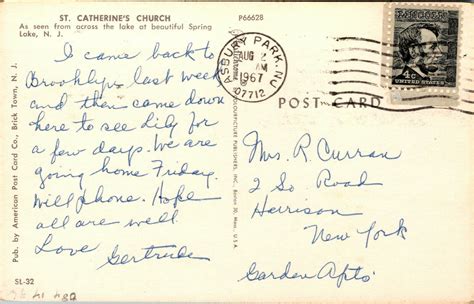 ST. CATHERINE'S CHURCH
As seen from across the lake at beautiful Spring
Lake, N. J.
P66628
I came back to
Brooklyn last week
and then came down
here to see Lily for
a few days. We are
going home Friday.
Will phone. Hope
all are well.
Love Gertrude
Pub. by American Post Card Co., Brick Town, N. J.
SL-32
COLOURPICTURE PUBLISHERS, INC., Boston 30, Mass., U.S.A.
ASBURY PARK, NJ
AUG 2
AM
1967
07712
4c UNITED STATES
POST CARD
Mrs. R Curran
2 So Road
Harrison
New York
Garden Apts.